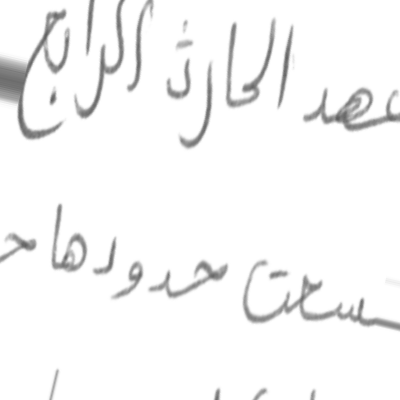 عهد الحارث الرابع
اتسعت حدودها